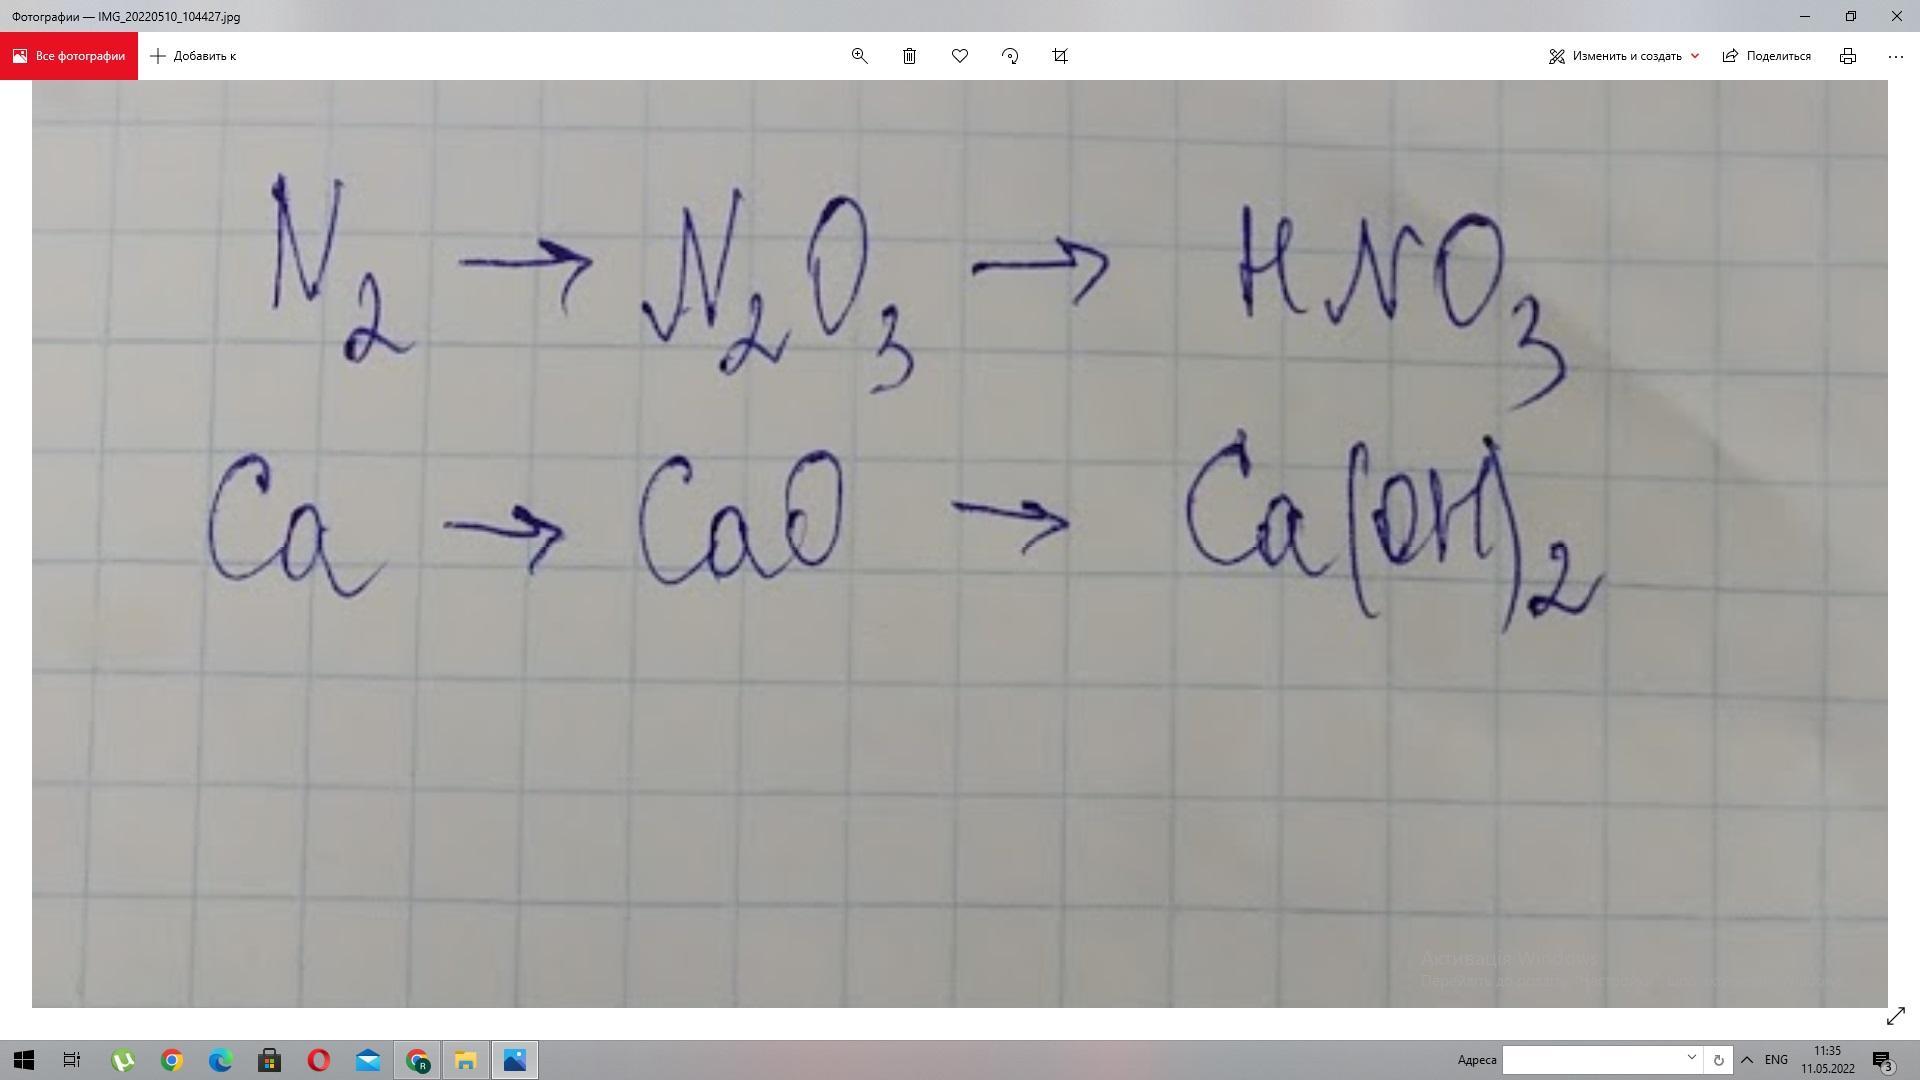 Фотографии — IMG_20220510_104427.jpg
Все фотографии Добавить к Изменить и создать Поделиться
N₂ → N₂O₃ → HNO₃
Ca → CaO → Ca(OH)₂
Активація Windows
Адреса ENG 11:35
11.05.2022 3